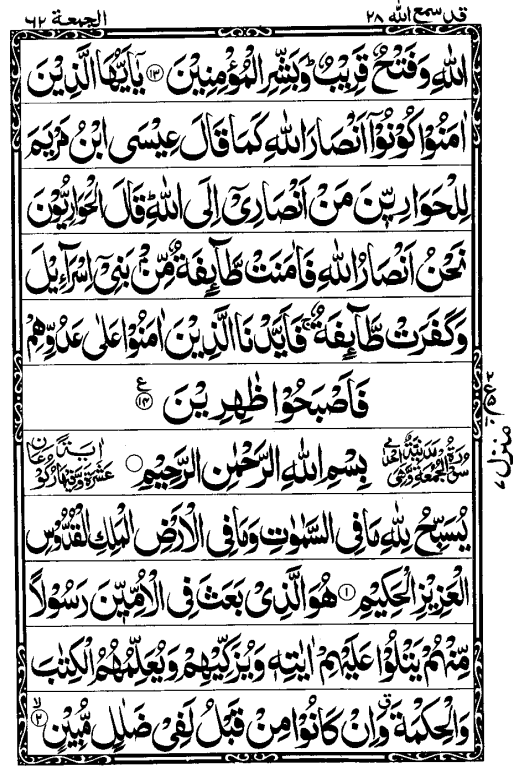 قد سمع الله ٢٨
الجمعة ٦٢
اللهِ وَفَتْحٌ قَرِيْبٌ ؕ وَبَشِّرِ الْمُؤْمِنِيْنَ ﴿۱۳﴾ يٰۤاَيُّهَا الَّذِيْنَ
اٰمَنُوْا كُوْنُوْۤا اَنْصَارَ اللهِ كَمَا قَالَ عِيْسَى ابْنُ مَرْيَمَ
لِلْحَوَارِيّٖنَ مَنْ اَنْصَارِيْۤ اِلَى اللهِ ؕ قَالَ الْحَوَارِيُّوْنَ
نَحْنُ اَنْصَارُ اللهِ فَاٰمَنَتْ طَّآىِٕفَةٌ مِّنْۢ بَنِيْۤ اِسْرَآءِيْلَ
وَكَفَرَتْ طَّآىِٕفَةٌ ۚ فَاَيَّدْنَا الَّذِيْنَ اٰمَنُوْا عَلٰى عَدُوِّهِمْ
فَاَصْبَحُوْا ظٰهِرِيْنَ ﴿۱۴﴾ ع
سُوْرَةُ الْجُمُعَةِ مَدَنِيَّةٌ
بِسْمِ اللهِ الرَّحْمٰنِ الرَّحِيْمِ
يُسَبِّحُ لِلّٰهِ مَا فِى السَّمٰوٰتِ وَمَا فِى الْاَرْضِ الْمَلِكِ الْقُدُّوْسِ
الْعَزِيْزِ الْحَكِيْمِ ﴿۱﴾ هُوَ الَّذِيْ بَعَثَ فِى الْاُمِّيّٖنَ رَسُوْلًا
مِّنْهُمْ يَتْلُوْا عَلَيْهِمْ اٰيٰتِهٖ وَيُزَكِّيْهِمْ وَيُعَلِّمُهُمُ الْكِتٰبَ
وَالْحِكْمَةَ ۗ وَاِنْ كَانُوْا مِنْ قَبْلُ لَفِيْ ضَلٰلٍ مُّبِيْنٍ ۙ ﴿۲﴾
منزل ٧